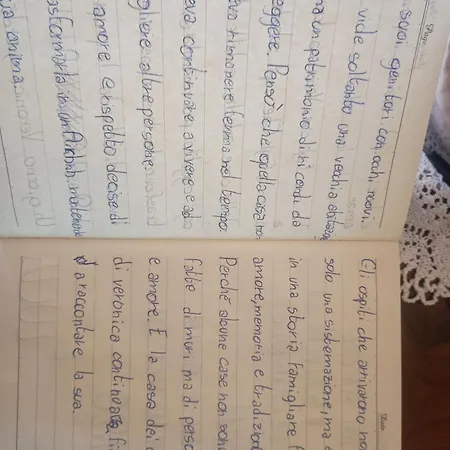 suoi genitori con occhi nuovi
vide soltanto una vecchia abitazio
ma un patrimonio di ricordi da
eggere. Pensò che quella casa non
eva rimanere ferma nel tempo
eva continuare a vivere e ad a
gliere altre persone.
amore e rispetto decise di
asformarla in un Airbnb, mantenendo
anima
Gli ospiti che arrivarono non
solo una sistemazione, ma e
in una storia famigliare f
amore, memoria e tradizion
Perché alcune case non sono
fatte di muri, ma di perso
e amore. E la casa dei
di veronica continuava fi
a raccontare la sua.